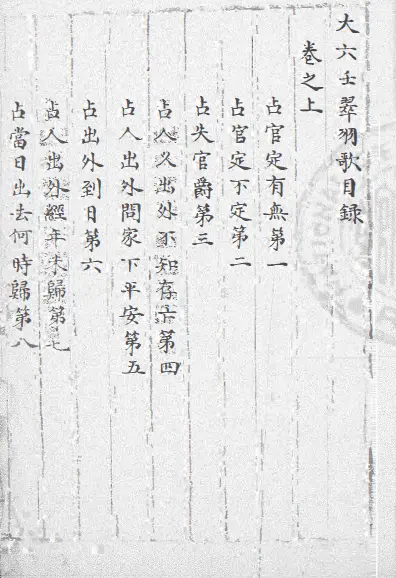 大六壬翠羽歌目錄
卷之上
占官定有無第一
占官定不定第二
占失官爵第三
占人久出外不知存亡第四
占人出外問家下平安第五
占出外到日第六
占人出外經年未歸第七
占當日出去何時歸第八